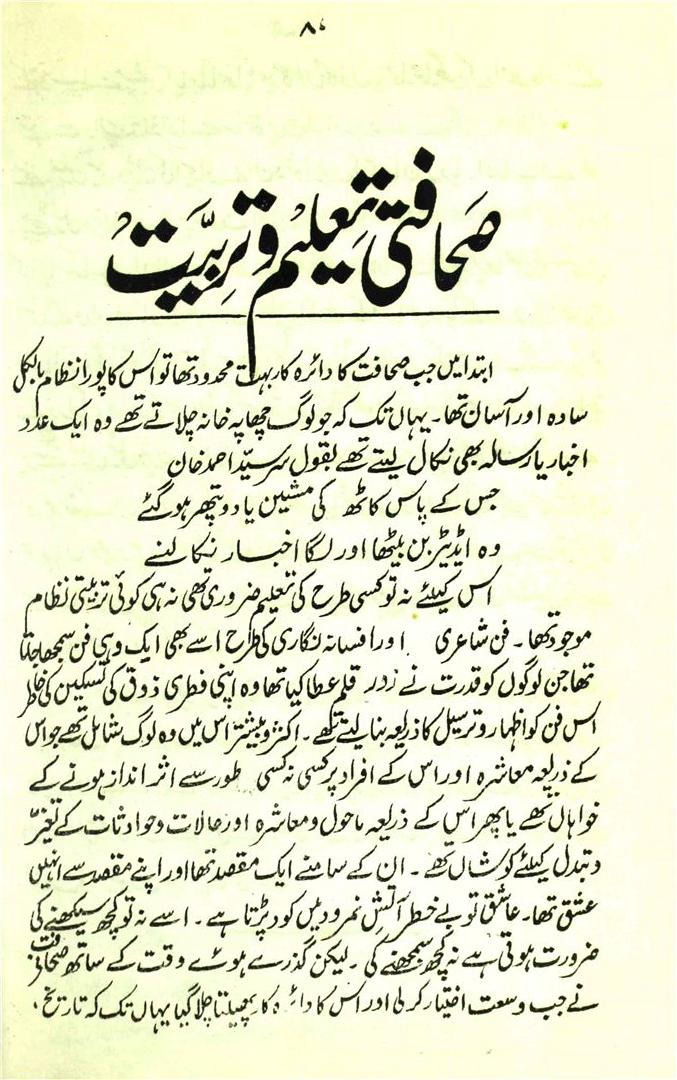 ۸۰
صحافتی تعلیم و تربیت
ابتدا میں جب صحافت کا دائرہ کار بہت محدود تھا تو اس کا پورا نظام بالکل
سادہ اور آسان تھا۔ یہاں تک کہ جو لوگ چھاپہ خانہ چلاتے تھے وہ ایک عدد
اخبار یا رسالہ بھی نکال لیتے تھے بقول سر سیّد احمد خان
جس کے پاس کاٹھ کی مشین یا دو پتھر ہو گئے
وہ ایڈیٹر بن بیٹھا اور لگا اخبار نکالنے
اس کیلئے نہ تو کسی طرح کی تعلیم ضروری تھی نہ ہی کوئی تربیتی نظام
موجود تھا۔ فن شاعری اور افسانہ نگاری کی طرح اسے بھی ایک وہبی فن سمجھا جاتا
تھا جن لوگوں کو قدرت نے زور قلم عطا کیا تھا وہ اپنی فطری ذوق کی تسکین کی خاطر
اس فن کو اظہار و ترسیل کا ذریعہ بنا لیتے تھے۔ اکثر و بیشتر اس میں وہ لوگ شامل تھے جو اس
کے ذریعہ معاشرہ اور اس کے افراد پر کسی نہ کسی طور سے اثر انداز ہونے کے
خواہاں تھے یا پھر اس کے ذریعہ ماحول و معاشرہ اور حالات و حوادثات کے تغیّر
و تبدل کیلئے کوشاں تھے۔ ان کے سامنے ایک مقصد تھا اور اپنے مقصد سے انہیں
عشق تھا۔ عاشق تو بے خطر آتش نمرود میں کود پڑتا ہے۔ اسے نہ تو کچھ سیکھنے کی
ضرورت ہوتی ہے نہ کچھ سمجھنے کی۔ لیکن گذرے ہوئے وقت کے ساتھ صحافت
نے جب وسعت اختیار کرلی اور اس کا دائرہ کار پھیلتا چلا گیا یہاں تک کہ تاریخ،